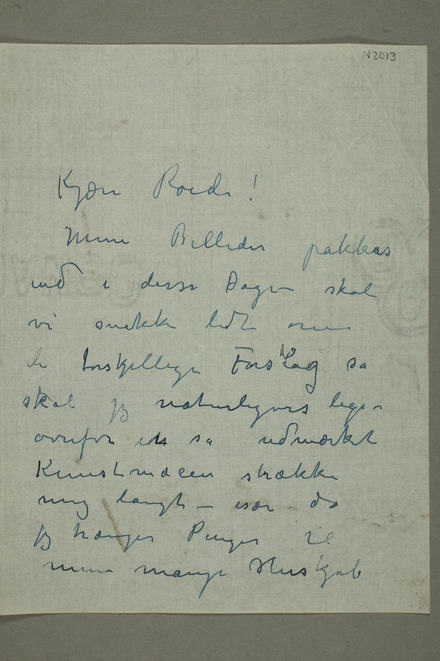 N 2013
Kjære Roede!
Mine Billeder pakkes
ned i disse Dage – skal
vi snakke lidt om
de forskjellige Forslag så
skal jeg naturligvis lige-
overfor en så udmærket
Kunstmæcen strække
mig langt – især da
jeg trænger Penger til
mine mange Huskjøb